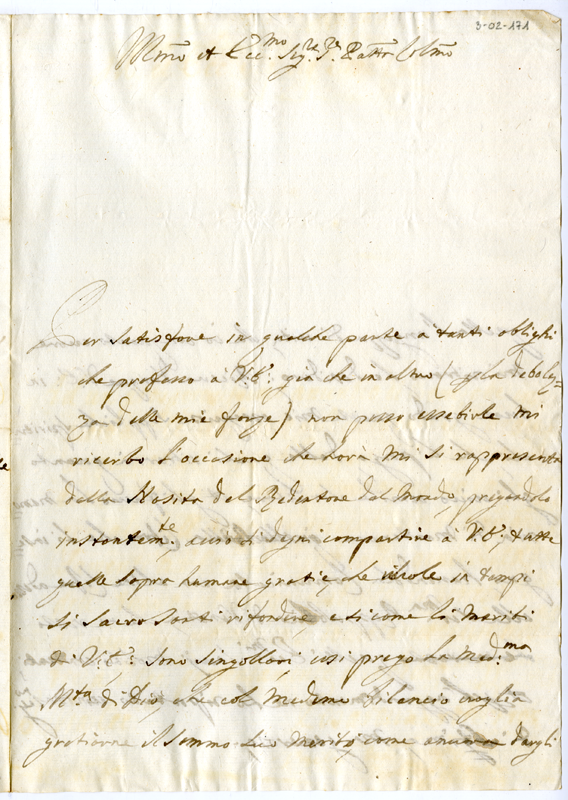 3-02-171
Ill.mo et Ecc.mo Sig.re Sig.r P.ron Col.mo
Per satisfare in qualche parte a tanti oblighi
che professo à V.E. già che in altro (p la debolez=
za delle mie forze) non posso essebirle mi
ricerbo l'occasione che hora mi si rappresenta
della Nasita del Redentore del Mondo, pregandolo
instantem.te acciò si degni compartire à V.E. tutte
quelle sopra humane gratie, che suole in tempi
si sacro santi rifondere, e si come li meriti
di V.E. sono singollari, cosi prego la med.ma
M.ta di Dio, che col medemo bilancio voglia
gratiarne il sommo suo merito, come ancora dargli